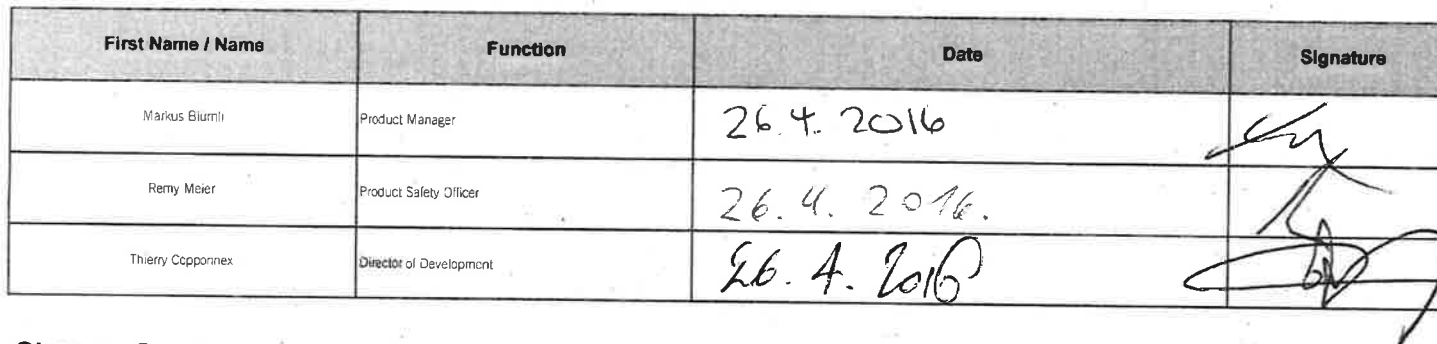 First Name / Name Function Date Signature
Markus Blumli Product Manager 26.4.2016
Remy Meier Product Safety Officer 26.4.2016.
Thierry Copponnex Director of Development 26.4.2016